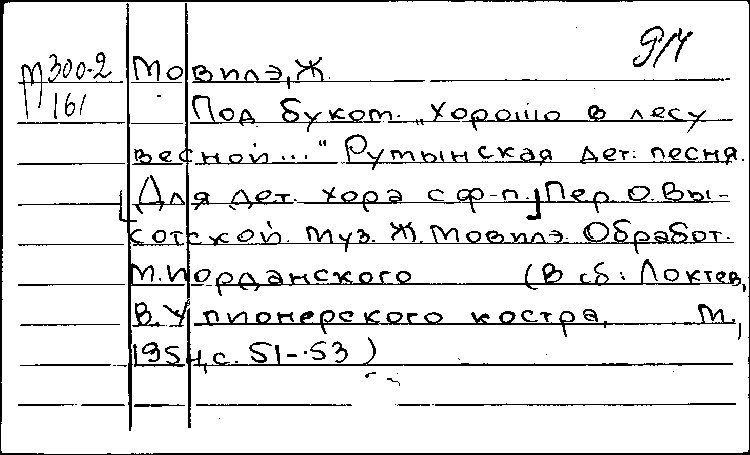 9/М
М300-2
161
Мовилэ, Ж.
Под буком. „Хорошо в лесу
весной..." Румынская дет. песня.
[Для дет. хора с ф-п.] Пер. О. Вы-
сотской. Муз. Ж. Мовилэ. Обработ.
М. Иорданского (В сб: Локтев,
В. У пионерского костра, М.,
1954, с. 51-53)